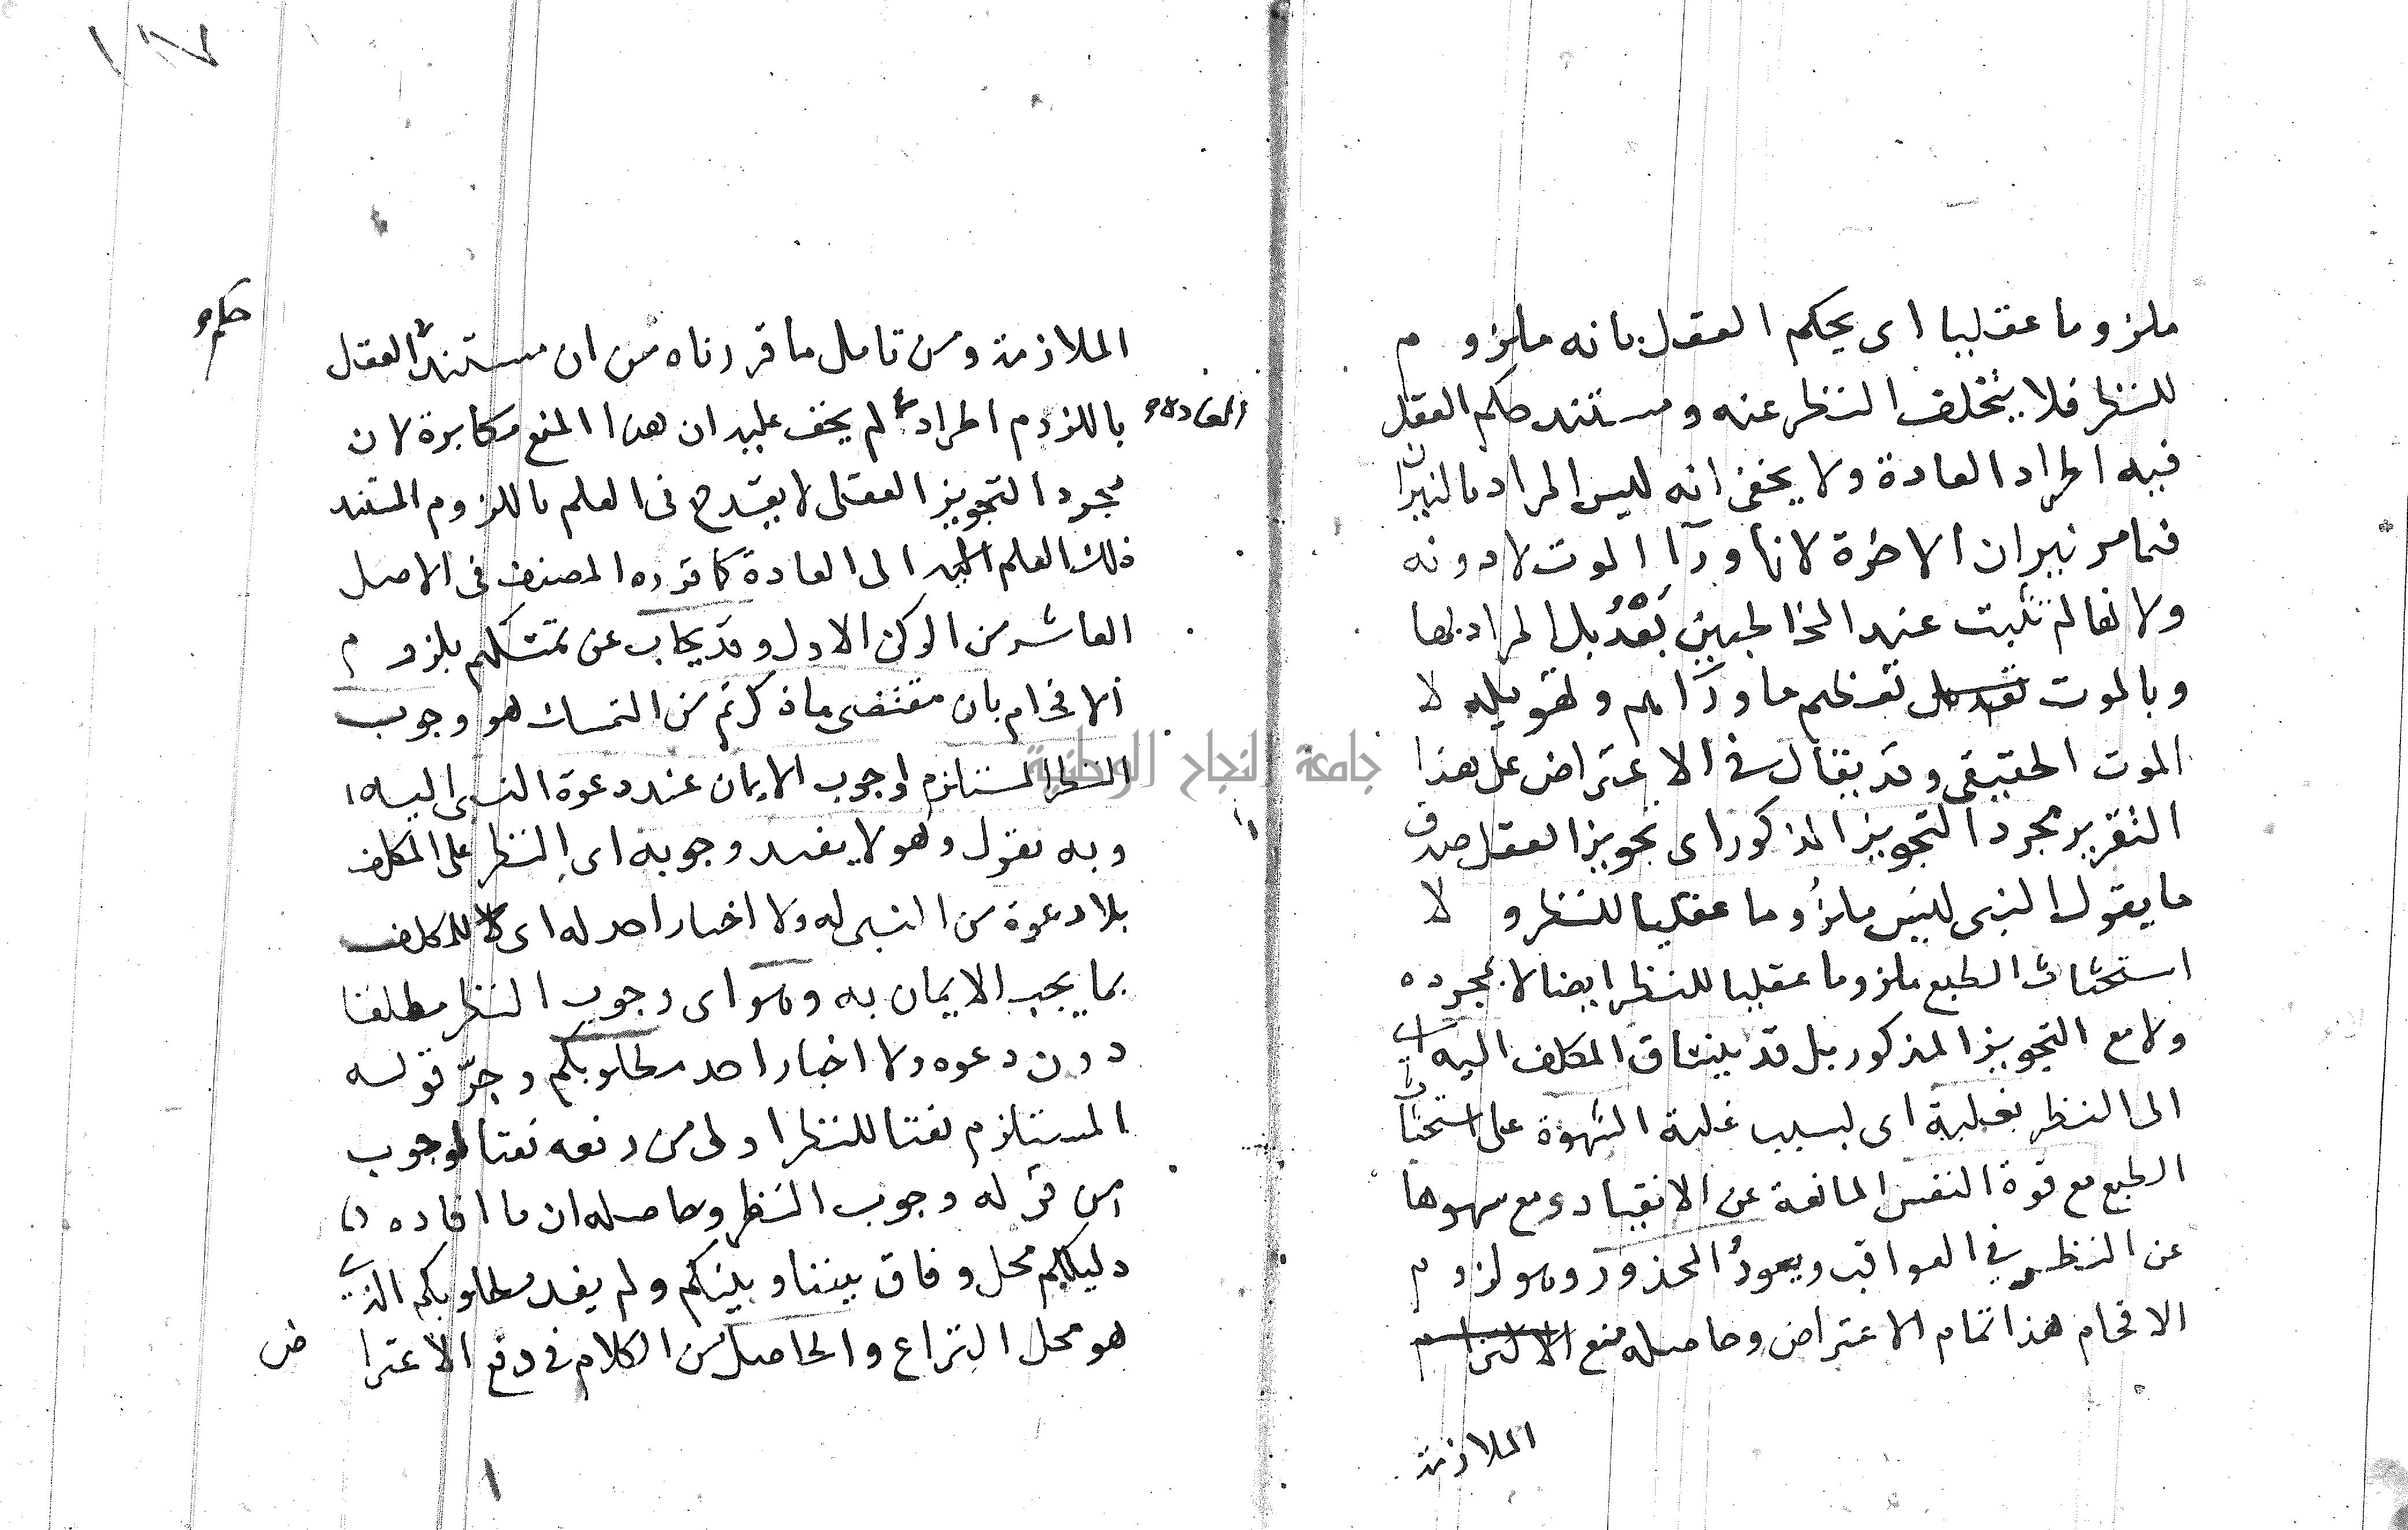 ملزوما عقليا اى يحكم العقل بانه ملزوم
للنظر فلا يتخلف النظر عنه ومستند حكم العقل
فيه اطراد العادة ولا يخفى انه ليس المراد بالنيران
فيما مر نيران الاخرة لانها ورآ الموت لا دونه
ولانها لم تثبت عند المخاطبين بَعْدُ بل المراد بها
وبالموت تعظيم ما ورآهم وتهويله لا
الموت الحقيقى وقد يقال فى الاعتراض على هذا
التقرير مجرد التجويز المذكور اى تجويز العقل صدق
ما يقول النبى ليس ملزوما عقليا للنظر ولا
استحثاث الطبع ملزوما عقليا للنظر ايضا لا بمجرده
ولا مع التجويز المذكور بل قد ينساق المكلف اليه اى
الى النظر بغلبة اى بسبب غلبة الشهوة على استحثاث
الطبع مع قوة النفس المانعة عن الانقياد ومع سهوها
عن النظر فى العواقب ويعودُ المحذور وهو لزوم
الافحام هذا تمام الاعتراض وحاصله منع الالتزام
الملازمة
١٢٧
الملازمة ومن تامل ما قررناه من ان مستند العقل
حكم
باللزوم اطراد لم يخف عليه ان هذا المنع مكابرة لان
العادة
مجرد التجويز العقلى لا يقدح فى العلم باللزوم المستند
ذلك العلم الى العادة كما قرره المصنف فى الاصل
العاشر من الركن الاول وقد يجاب عن تمسكهم بلزوم
الافحام بان مقتضى ما ذكرتم من التمسك هو وجوب
النظر المستلزم لوجوب الايمان عند دعوة النبى اليه
وبه نقول وهو لا يفيد وجوبه اى النظر على المكلف
بلا دعوة من النبى له ولا اخبار احد له اى للمكلف
بما يجب الايمان به وهو اى وجوب النظر مطلقا
دون دعوه ولا اخبار احد مطلوبكم وجرّ قوله
المستلزم نعتا للنظر اولى من رفعه نعتا لوجوب
من قوله وجوب النظر وحاصله ان ما افاده
دليلكم محل وفاق بيننا وبينكم ولم يفد مطلوبكم الذى
هو محل النزاع والحاصل من الكلام فى دفع الاعتراض
جامعة النجاح الوطنية